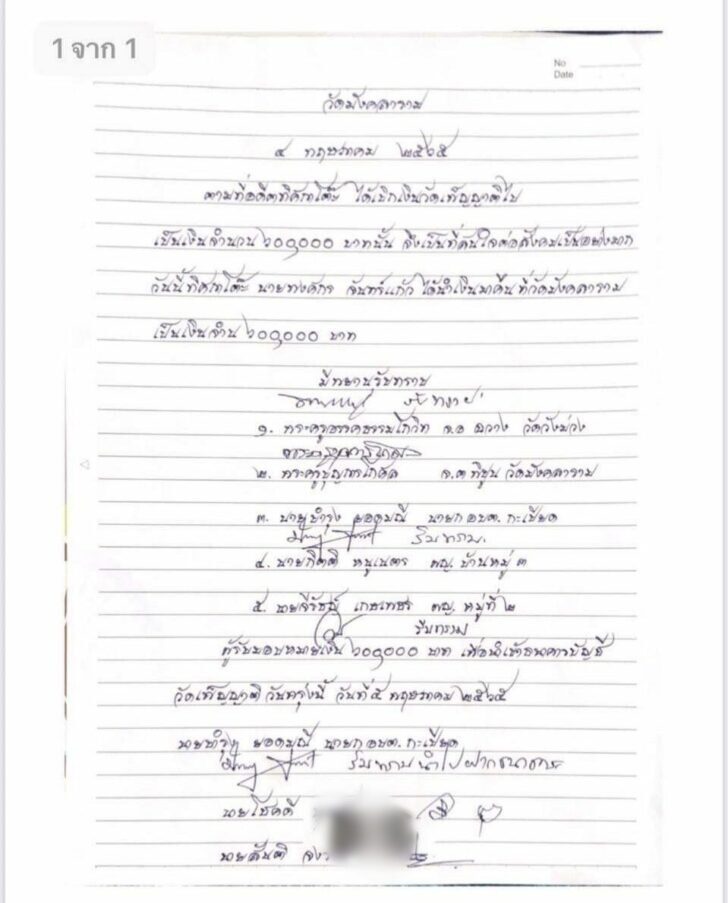 1 จาก 1
No
Date
วัดมังคลาราม
๔ พฤษภาคม ๒๕๖๕
ตามที่อดีตทิศาโต๊ะ ได้เบิกเงินวัดเพ็ญญาติไป
เป็นเงินจำนวน ๖๐๐,๐๐๐ บาทนั้น จึงเป็นที่สนใจต่อสังคมเป็นอย่างมาก
วันนี้ทิศาโต๊ะ นาย จันทร์แก้ว ได้นำเงินมาคืน ที่วัดมังคลาราม
เป็นเงินจำน ๖๐๐,๐๐๐ บาท
มีพยานรับทราบ
๑. พระครู วัดวังม่วง
๒. พระครู วัดมังคลาราม
๓. นายบำรุง ยอดมณี นายก อบต. กะเปียด
รับทราบ
๔. นายกิตติ หนูเนตร ผญ. บ้านหมู่ ๓
๕. นาย เกษเพชร ผญ. หมู่ที่ ๒
รับทราบ
ผู้รับมอบหมายเงิน ๖๐๐,๐๐๐ บาท เพื่อนำเข้าธนาคารบัญชี
วัดเพ็ญญาติ วันพรุ่งนี้ วันที่ ๕ พฤษภาคม ๒๕๖๕
นายบำรุง ยอดมณี นายก อบต. กะเปียด
รับทราบนำไปฝากธนาคาร
นายโชคดี
นายสันติ